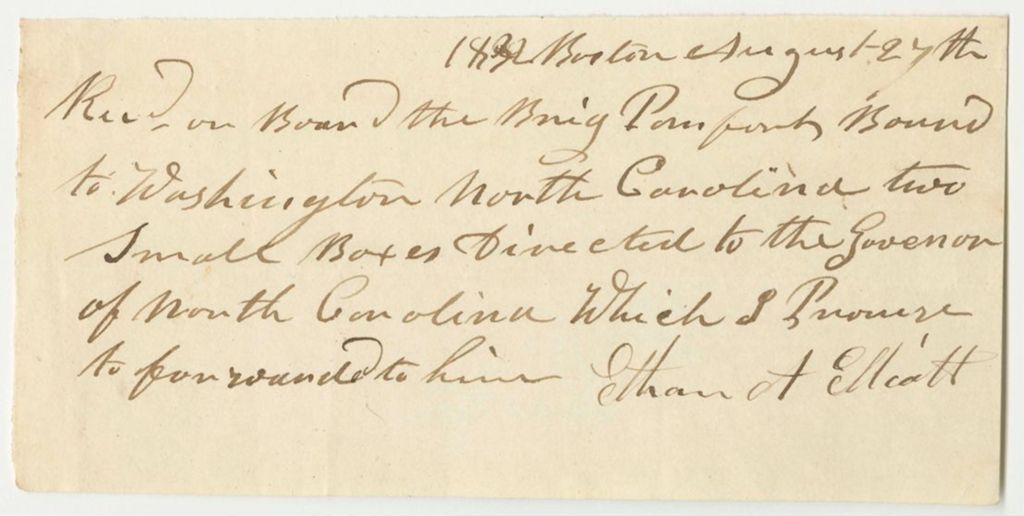 Boston August 27th
Recd on Board the Brig Pomfont Bound
to Washington North Carolina two
Small Boxes Directed to the Govenor
of North Carolina Which I Promise
to forwarded to him Ethan A Elliott